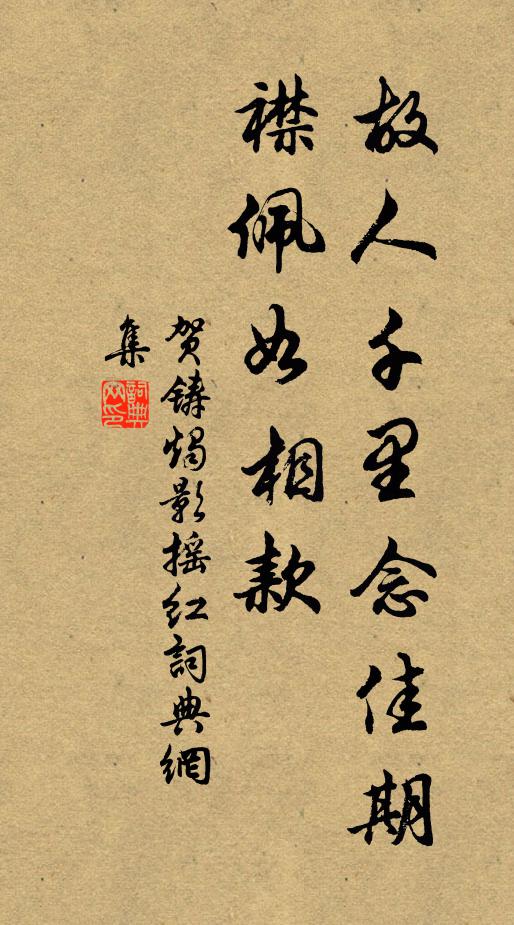 故人千里念佳期
襟佩如相款
贺铸烛影摇红詞典網
集
詞典
网印